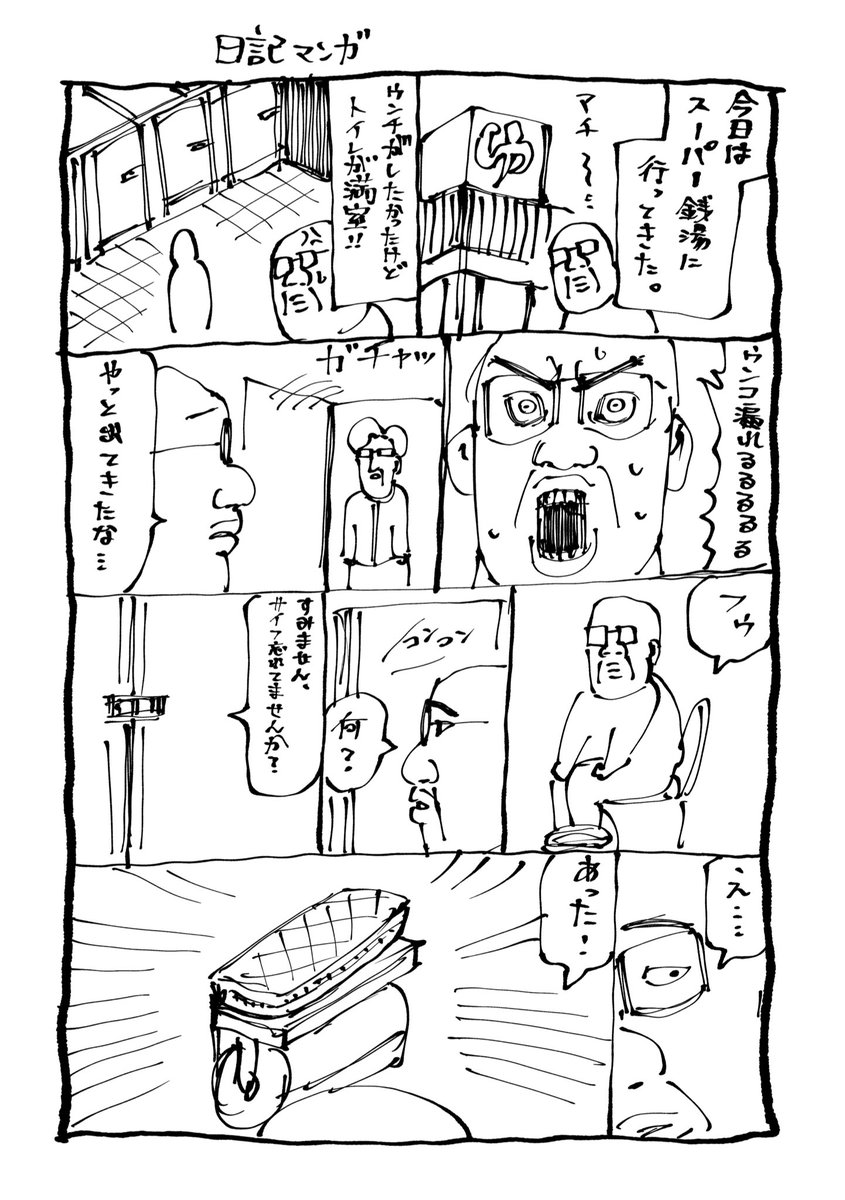 日記マンガ
今日は
スーパー銭湯に
行ってきた。
アチ〜…
ウンチがしたかったけど
トイレが満室!!
ウンコ漏れるるるるる
ガチャッ
やっと出てきたな…
フゥ
コンコン
何?
すみません、
サイフ忘れてませんか?
え……
あった!